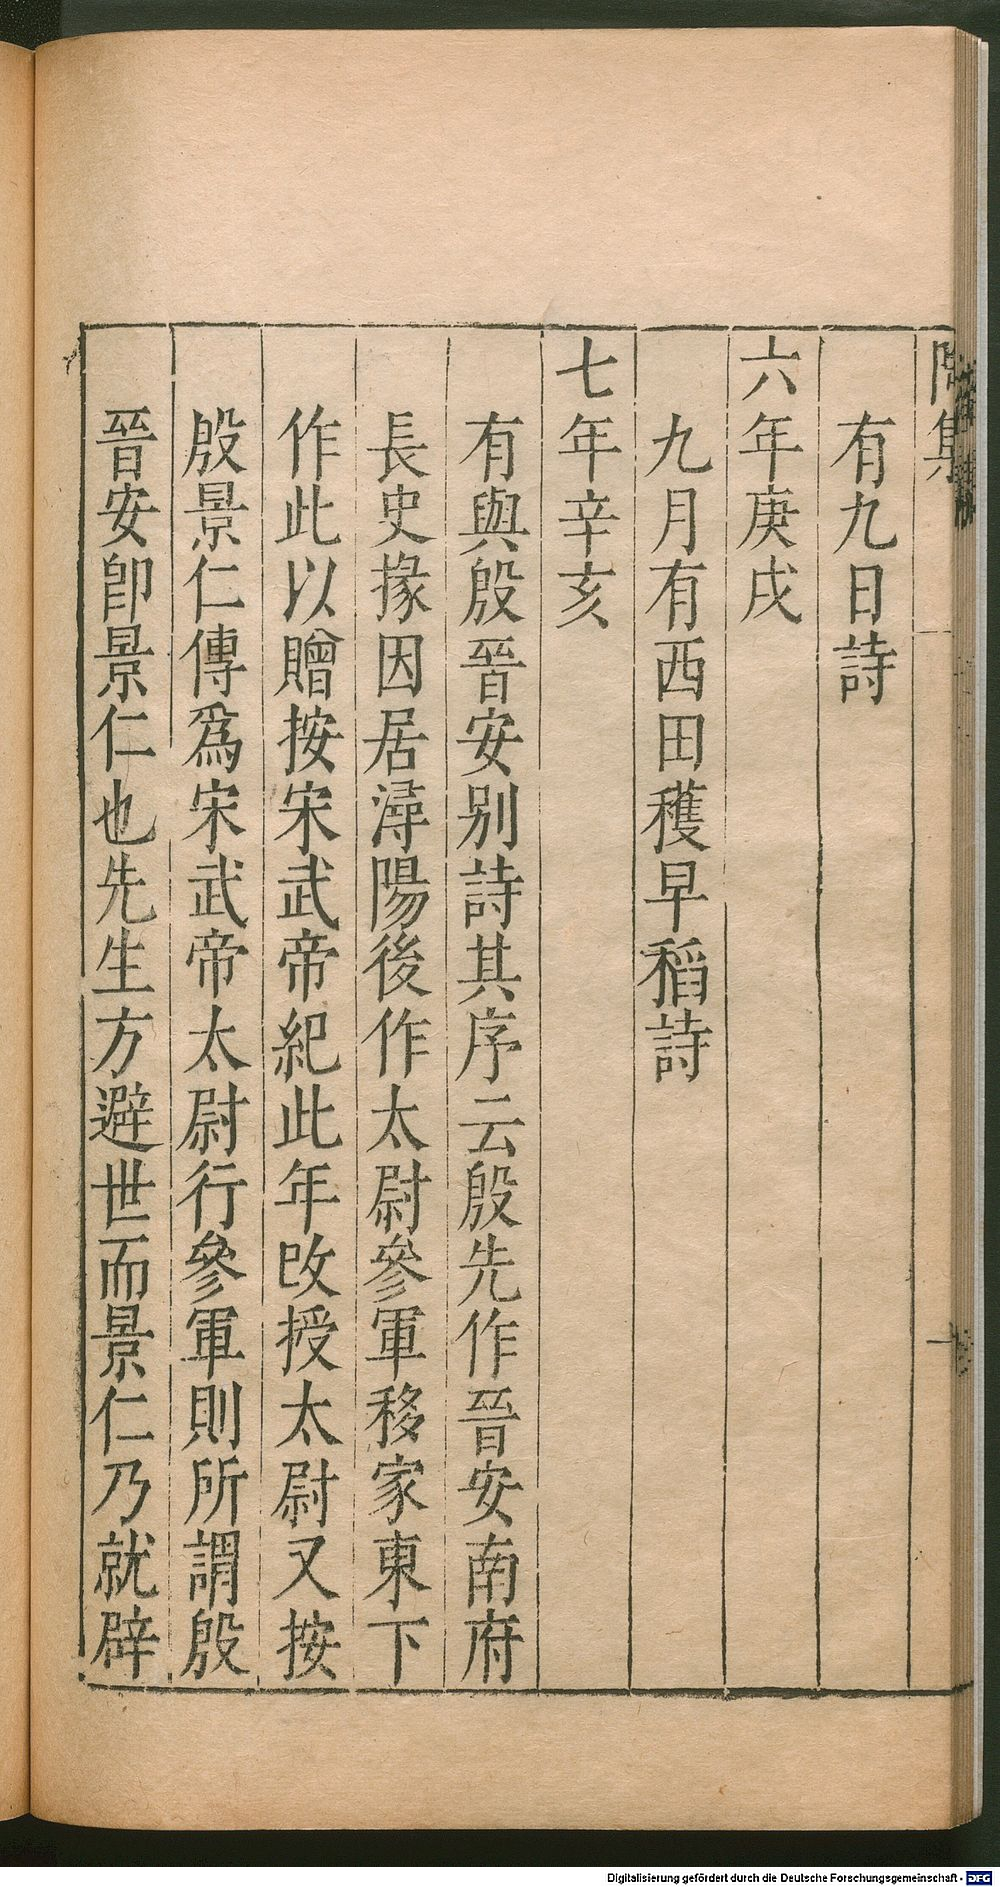 有九日詩
六年庚戌
九月有西田穫早稻詩
七年辛亥
有與殷晉安别詩其序云殷先作晉安南府
長史掾因居潯陽後作太尉參軍移家東下
作此以贈按宋武帝紀此年改授太尉又按
殷景仁傳爲宋武帝太尉行參軍則所謂殷
晉安卽景仁也先生方避世而景仁乃就辟
Digitalisierung gefördert durch die Deutsche Forschungsgemeinschaft - DFG